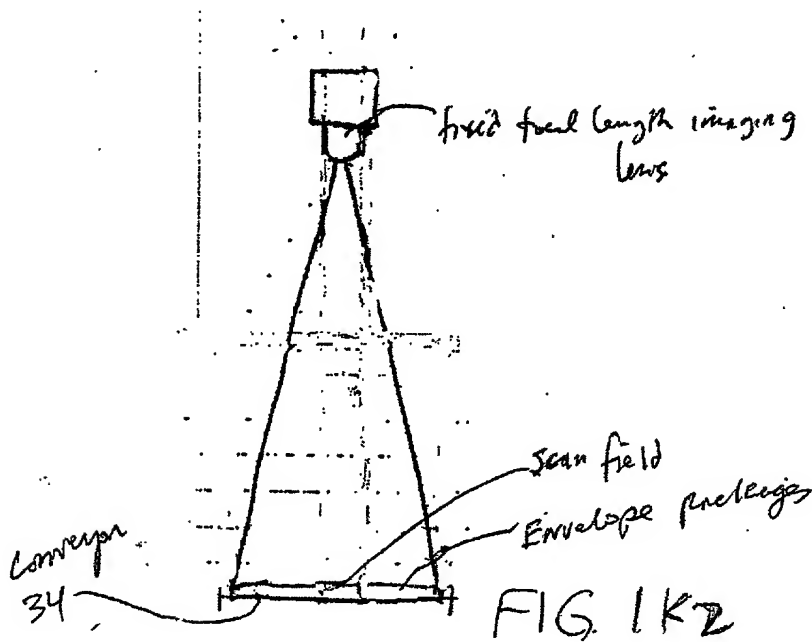 fixed focal length imaging
lens
scan field
Envelope packages
conveyor
34
FIG. 1K2